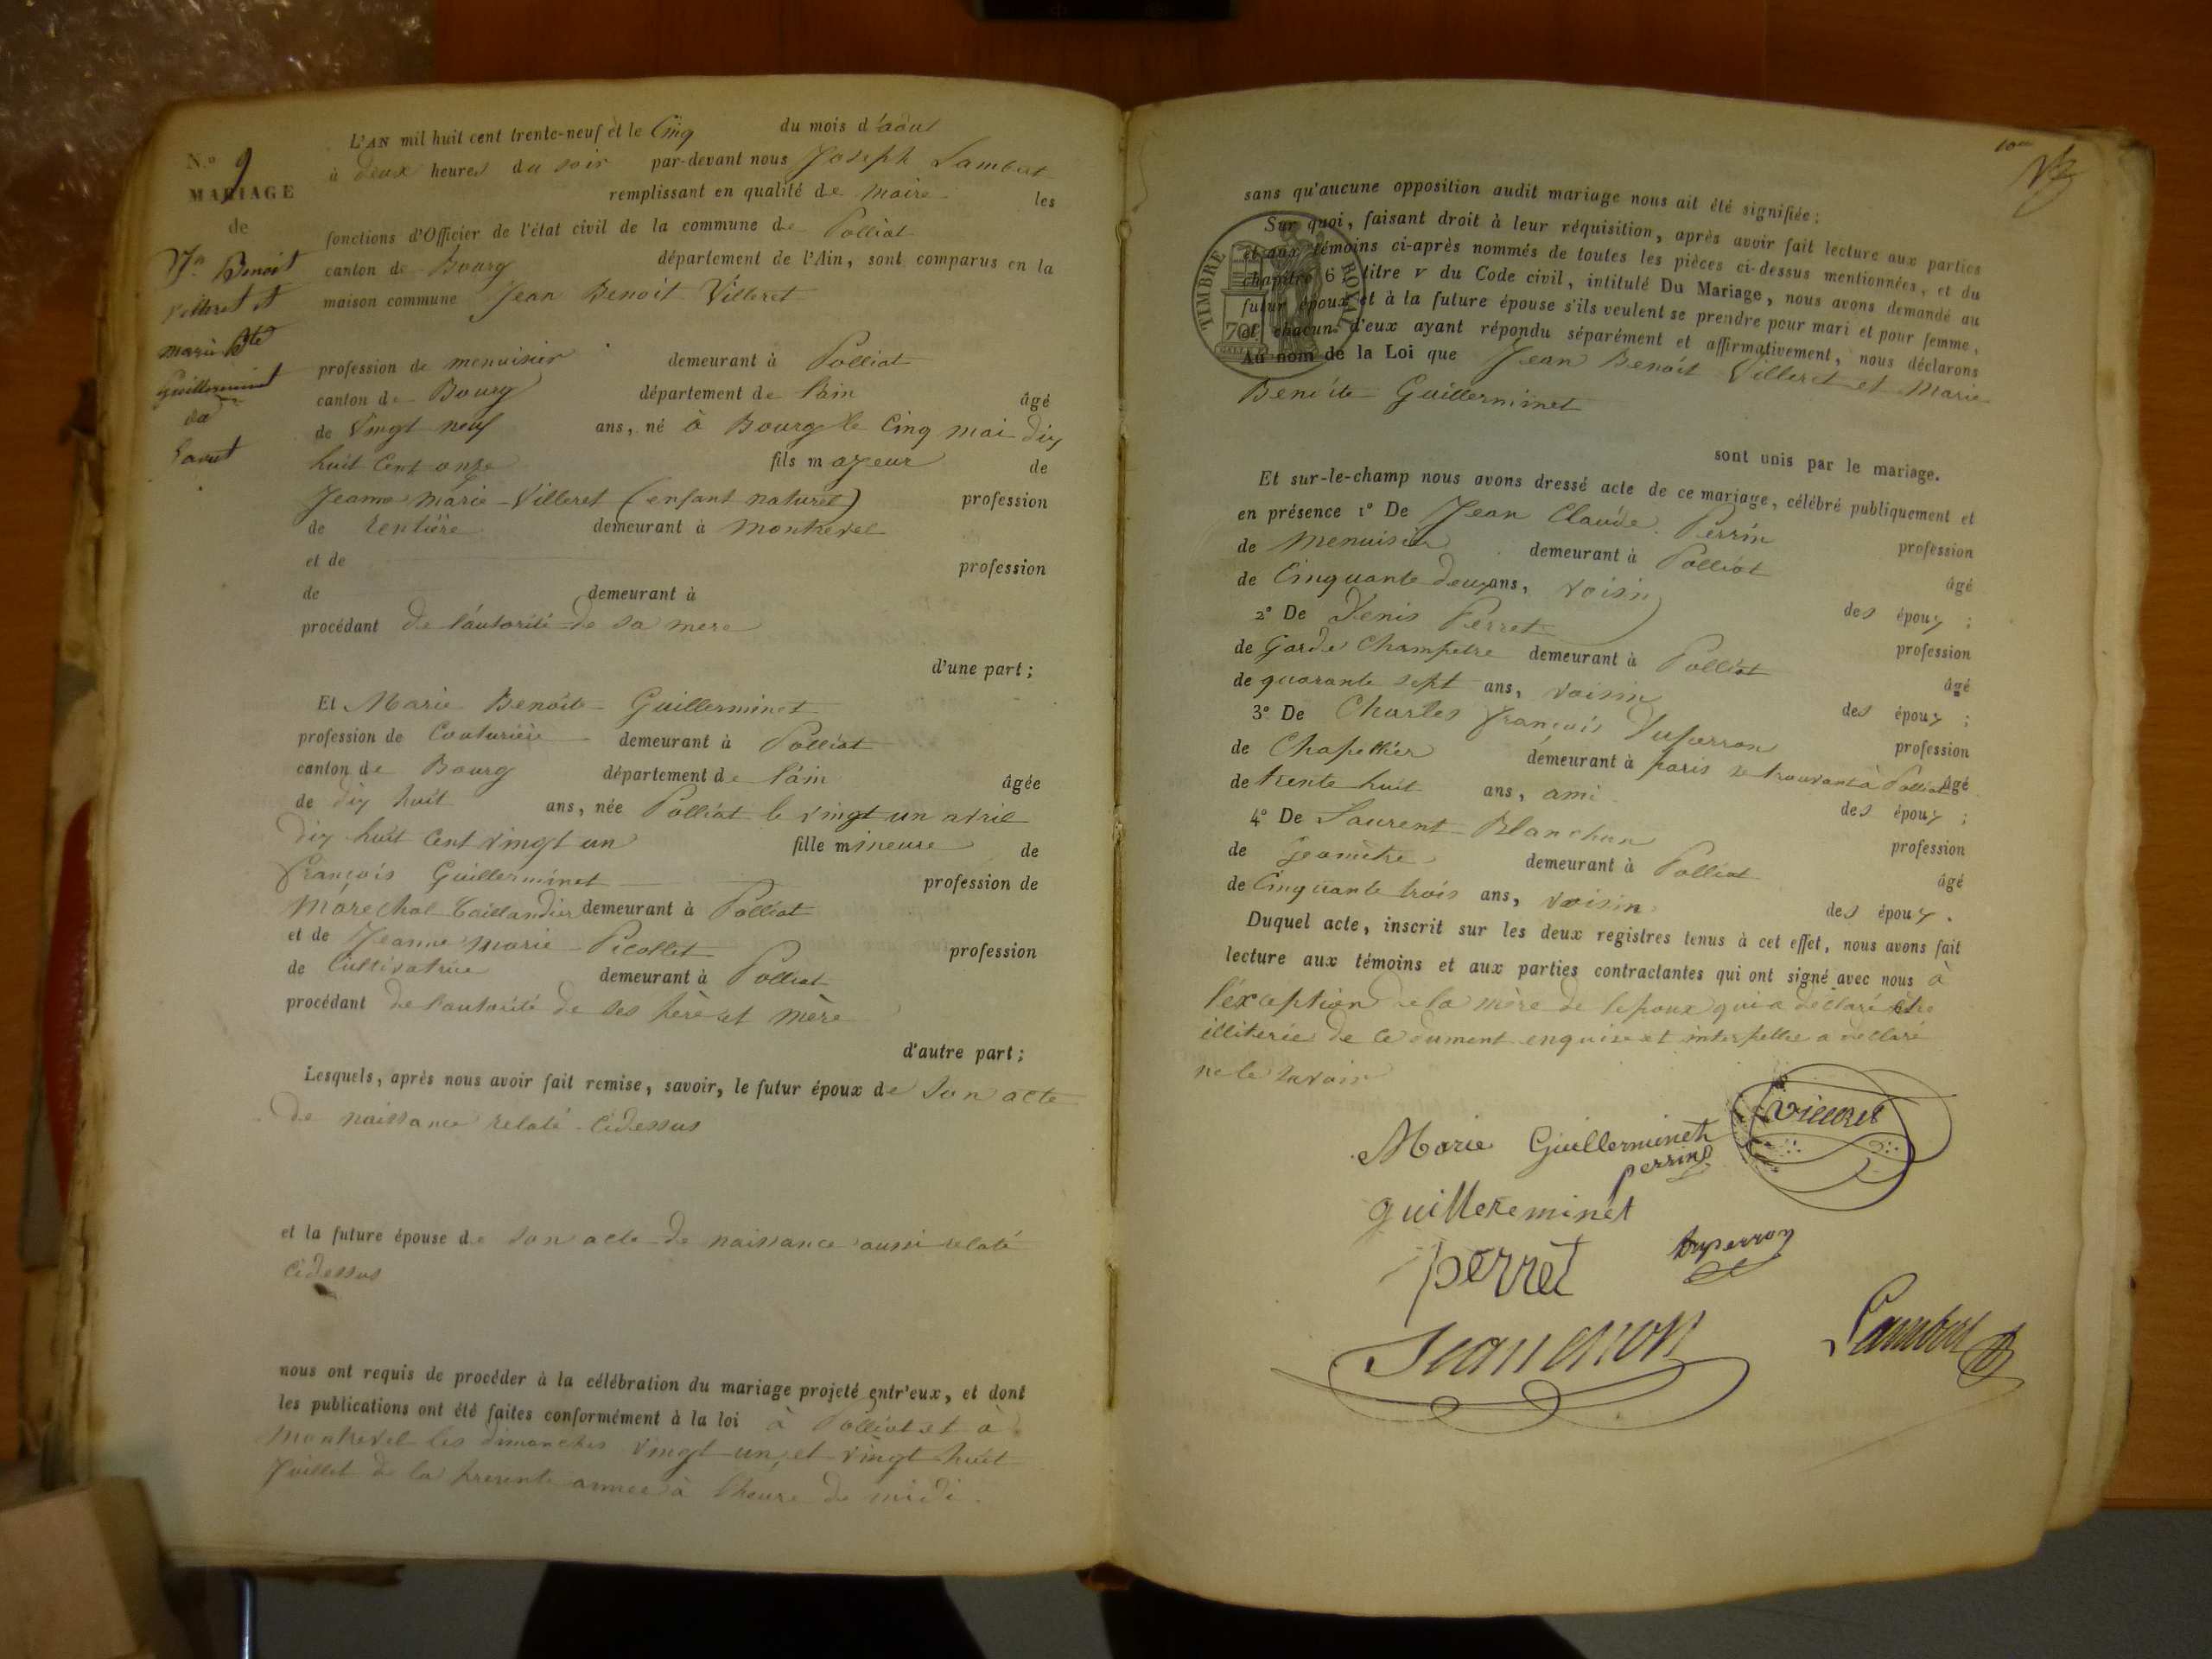 N.o 9
MARIAGE
de
Jn Benoit
Villeret et
marie Bte
Guillerminet
L'AN mil huit cent trente-neuf et le Cinq du mois d'aout
à deux heures du soir par-devant nous Joseph Lambert
remplissant en qualité de maire les
fonctions d'Officier de l'état civil de la commune de Polliat
canton de Bourg département de l'Ain, sont comparus en la
maison commune Jean Benoit Villeret
profession de menuisier demeurant à Polliat
canton de Bourg département de l'ain âgé
de Vingt neuf ans, né à Bourg le Cinq mai dix
huit Cent onze fils majeur de
Jeanne marie Villeret (enfant naturel) profession
de rentière demeurant à montrevel
et de profession
de demeurant à
procédant de l'autorité de sa mere
d'une part;
Et Marie Benoite Guillerminet
profession de Couturière demeurant à Polliat
canton de Bourg département de l'ain âgée
de dix huit ans, née Polliat le vingt un avril
dix huit Cent vingt un fille mineure de
François Guillerminet profession de
Maréchal taillandier demeurant à Polliat
et de Jeanne Marie Picollet profession
de Cultivatrice demeurant à Polliat
procédant de l'autorité de ses père et mère
d'autre part;
Lesquels, après nous avoir fait remise, savoir, le futur époux de son acte
de naissance relaté cidessus
et la future épouse de son acte de naissance aussi relaté
cidessus
nous ont requis de procéder à la célébration du mariage projeté entr'eux, et dont
les publications ont été faites conformément à la loi à Polliat et à
montrevel les dimanches vingt un et vingt huit
Juillet de la presente annee à l'heure de midi.
sans qu'aucune opposition audit mariage nous ait été signifiée;
Sur quoi, faisant droit à leur réquisition, après avoir fait lecture aux parties
et aux témoins ci-après nommés de toutes les pièces ci-dessus mentionnées, et du
chapitre 6 titre V du Code civil, intitulé Du Mariage, nous avons demandé au
futur époux et à la future épouse s'ils veulent se prendre pour mari et pour femme,
et chacun d'eux ayant répondu séparément et affirmativement, nous déclarons
Au nom de la Loi que Jean Benoit Villeret et Marie
Benoite Guillerminet
TIMBRE ROYAL
70c.
sont unis par le mariage.
Et sur-le-champ nous avons dressé acte de ce mariage, célébré publiquement et
en présence 1° De Jean Claude Perrin profession
de Menuisier demeurant à Polliat âgé
de Cinquante deux ans, voisin des époux ;
2° De Denis Perret profession
de Garde Champetre demeurant à Polliat âgé
de quarante sept ans, voisin des époux ;
3° De Charles François Duperron profession
de Chapellier demeurant à paris se trouvant à Polliat âgé
de trente huit ans, ami des époux ;
4° De Laurent Blanchon profession
de Geometre demeurant à Polliat âgé
de Cinquante trois ans, voisin des époux .
Duquel acte, inscrit sur les deux registres tenus à cet effet, nous avons fait
lecture aux témoins et aux parties contractantes qui ont signé avec nous à
l'exception de la mère de l'epoux qui a déclaré être
illiterée de ce dument enquise et interpellee a déclaré
ne le savoir
Villeret
Marie Guillerminet
perrin
guillereminet
perret
duperron
Lambert